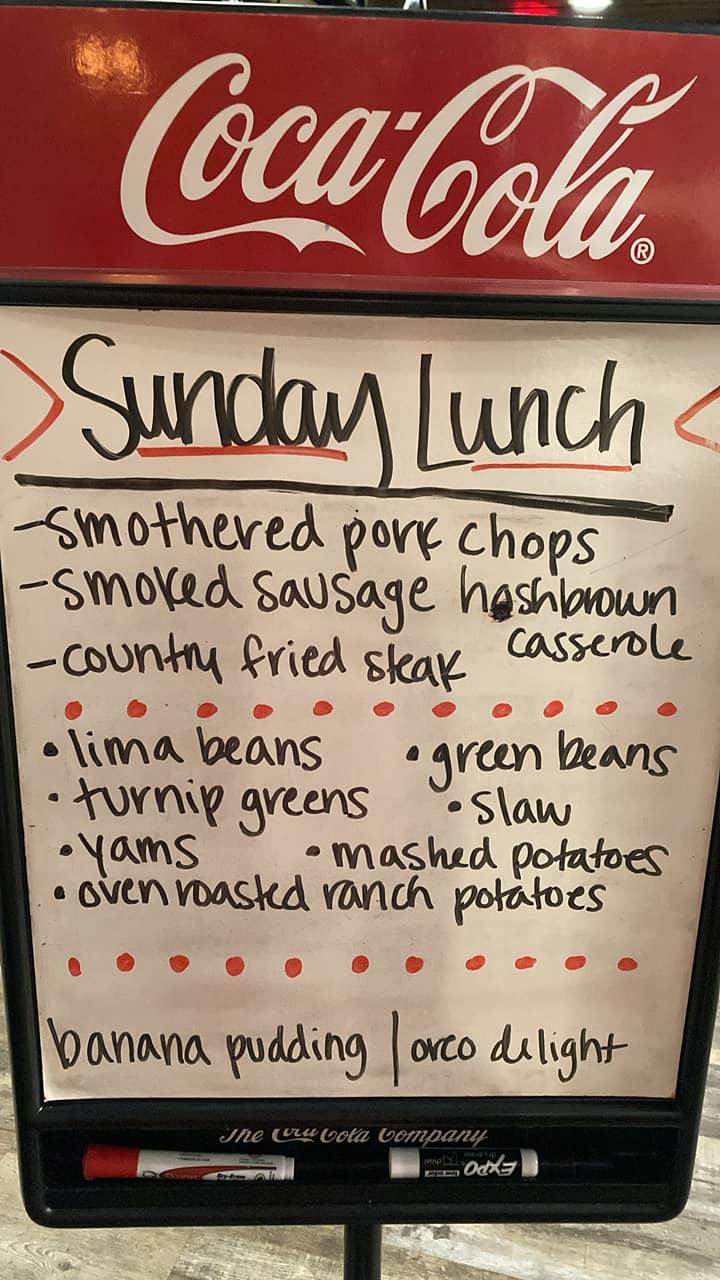 Coca-Cola®
Sunday Lunch
-smothered pork chops
-smoked sausage hashbrown
casserole
-country fried steak
•lima beans •green beans
•turnip greens •slaw
•yams •mashed potatoes
•oven roasted ranch potatoes
banana pudding | oreo delight
The Coca-Cola Company
EXPO